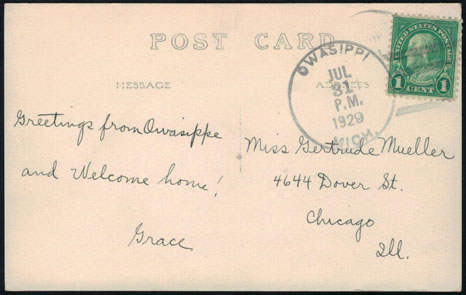 POST CARD
MESSAGE
ADDRESS
UNITED STATES POSTAGE
1 CENT 1
OWASIPPI
JUL
31
P.M.
1929
MICH.
Greetings from Owasippe
and Welcome home!
Grace
Miss Gertrude Mueller
4644 Dover St.
Chicago
Ill.